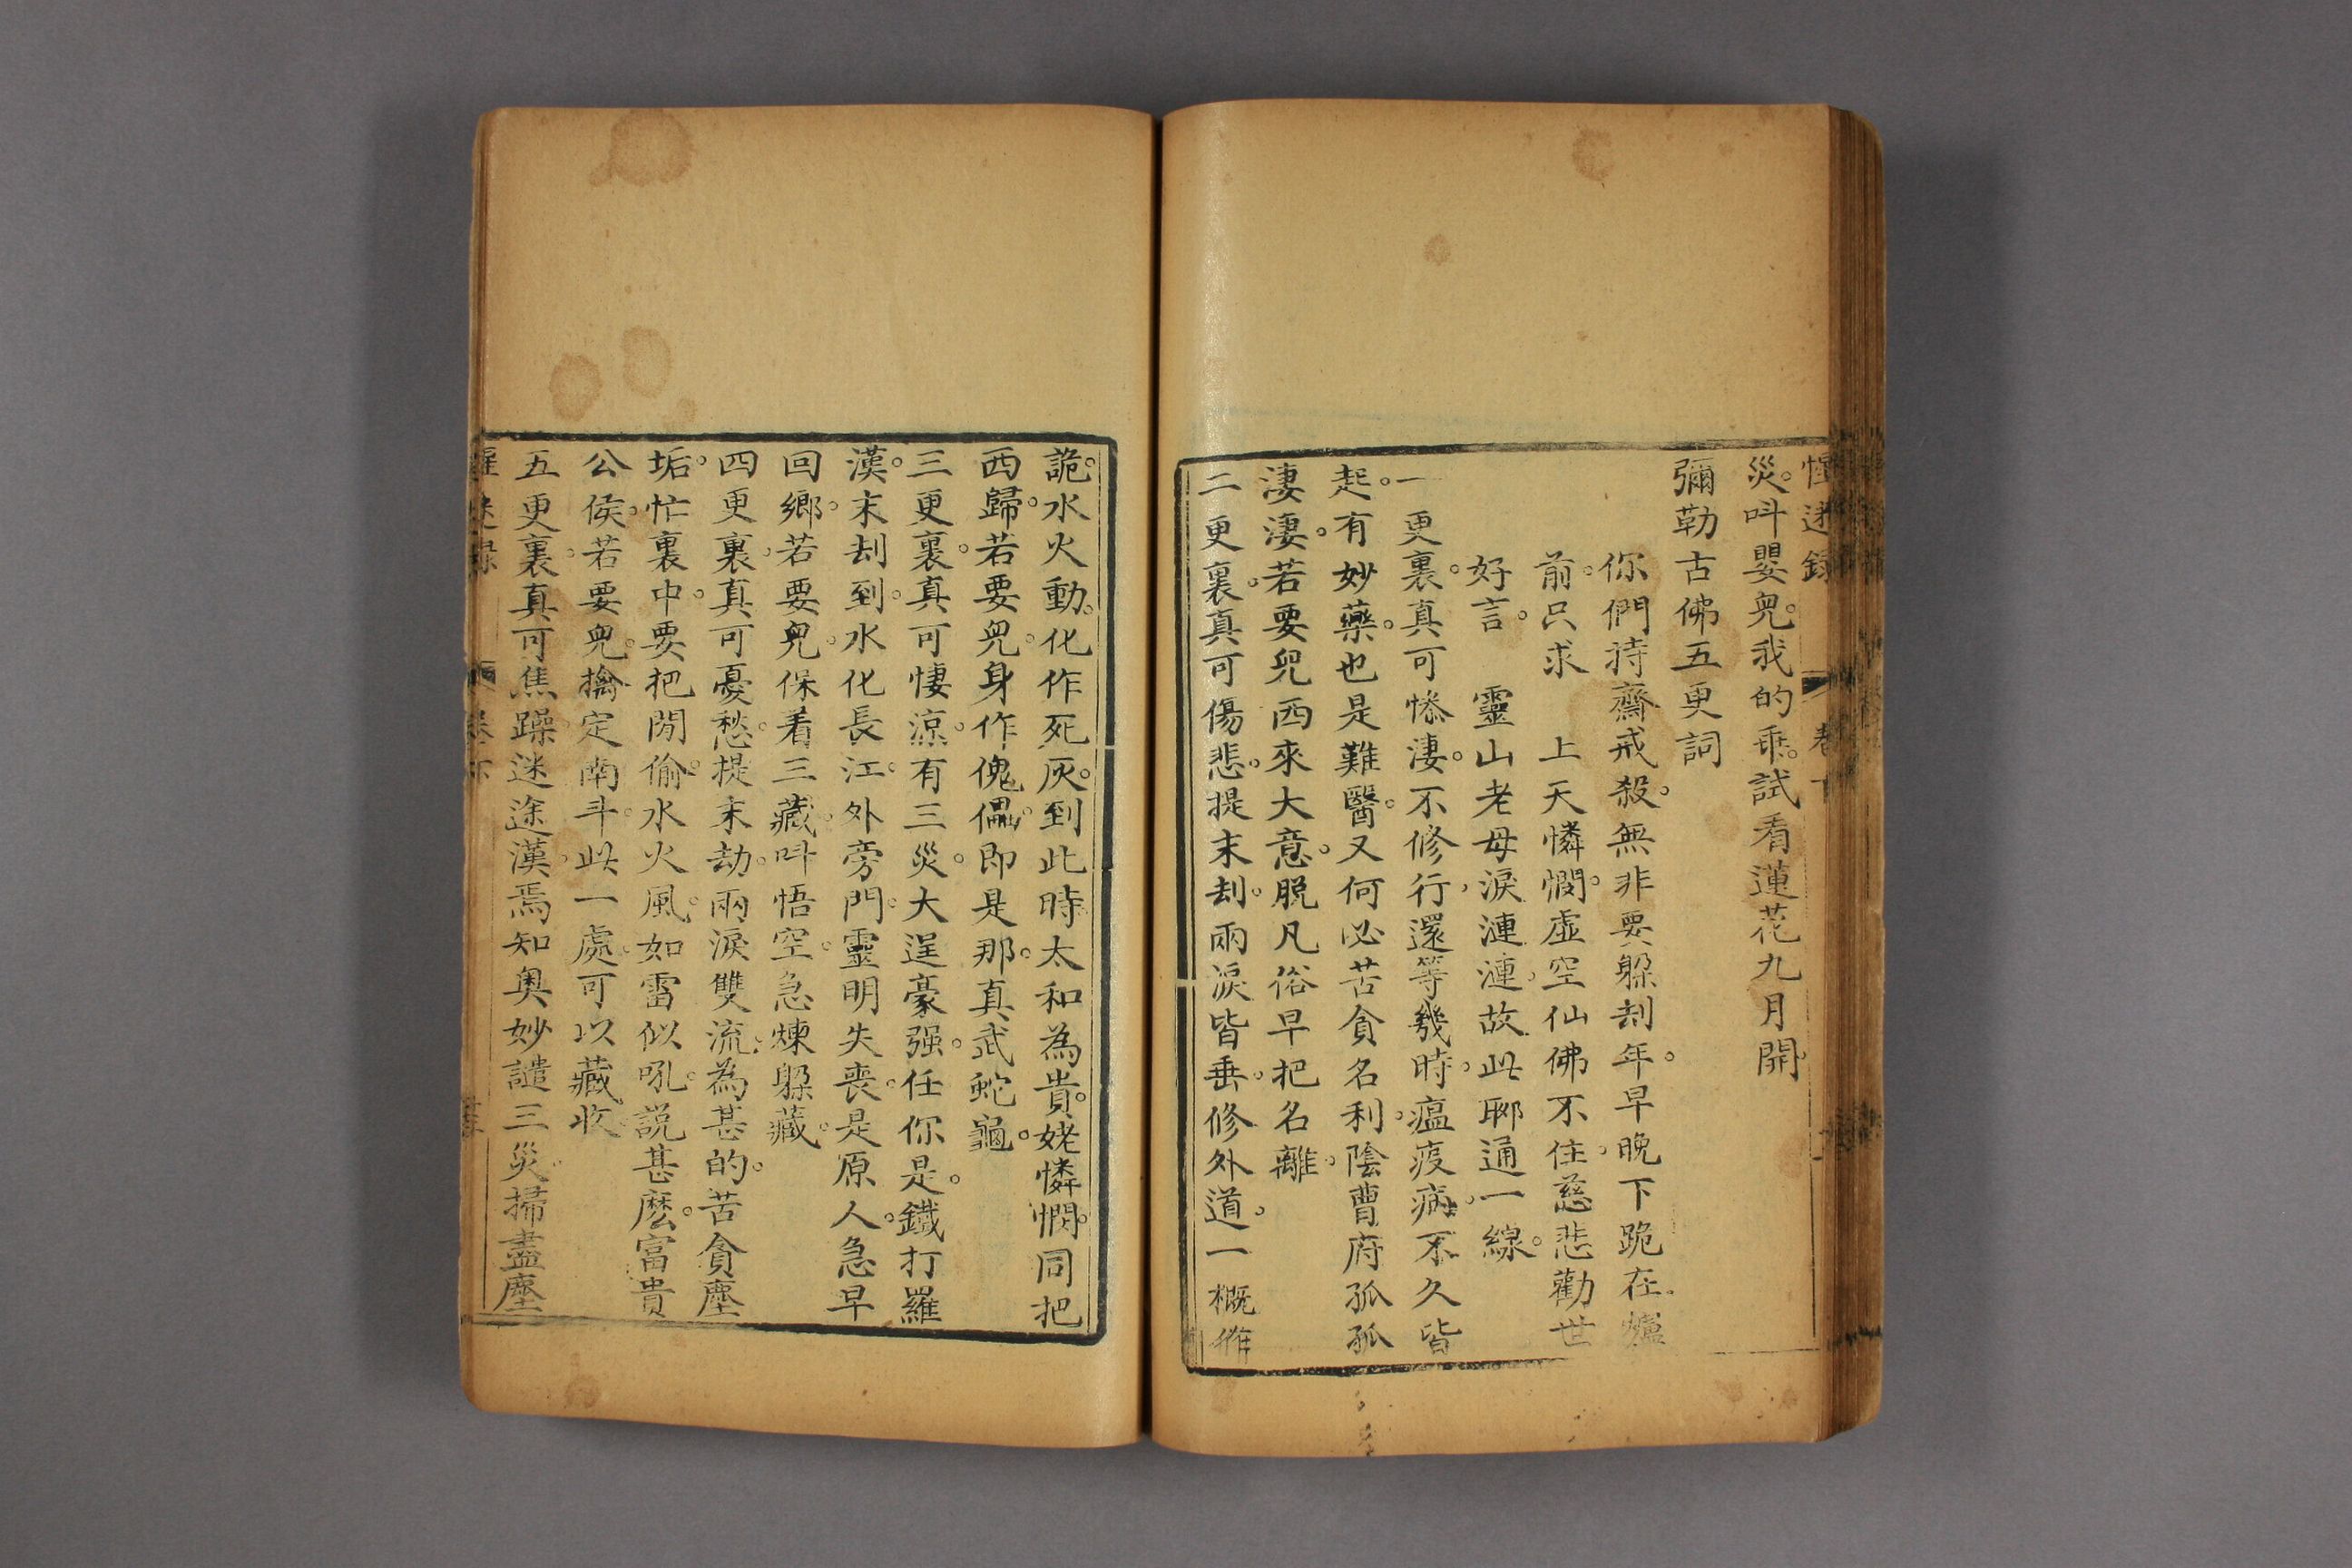 惺迷錄 卷下
災。呌嬰兒。我的乖。試看蓮花九月開。
彌勒古佛五更詞
你們持齋戒殺。無非要躲刼年。早晚下跪在。爐
前。只求 上天憐憫。虛空仙佛不住。慈悲勸世
好言。 靈山老母淚漣漣。故此聊通一線。
一更裏。真可慘淒。不修行。還等幾時。瘟疫病。不久皆
起。有妙藥。也是難醫。又何必苦貪名利。陰曹府孤孤
淒淒。若要兒西來大意。脱凡俗早把名離。
二更裏。真可傷悲。提末刼。兩淚皆垂。修外道。一概作
詭。水火動。化作死灰。到此時太和為貴。姥憐憫。同把
西歸。若要兒。身作傀儡。即是那。真武蛇龜。
三更裏。真可悽涼。有三災。大逞豪强。任你是。鐵打羅
漢。末刼到。水化長江。外旁門。靈明失喪。是原人。急早
回鄉。若要兒。保着三藏。呌悟空。急煉躲藏。
四更裏。真可憂愁。提末劫。兩淚雙流。為甚的。苦貪塵
垢。忙裏中。要把閒偷。水火風。如雷似吼。説甚麽。富貴
公侯。若要兒。擒定南斗。此一處。可以藏收。
五更裏。真可焦躁。迷途漢。焉知奥妙。譴三災。掃盡塵